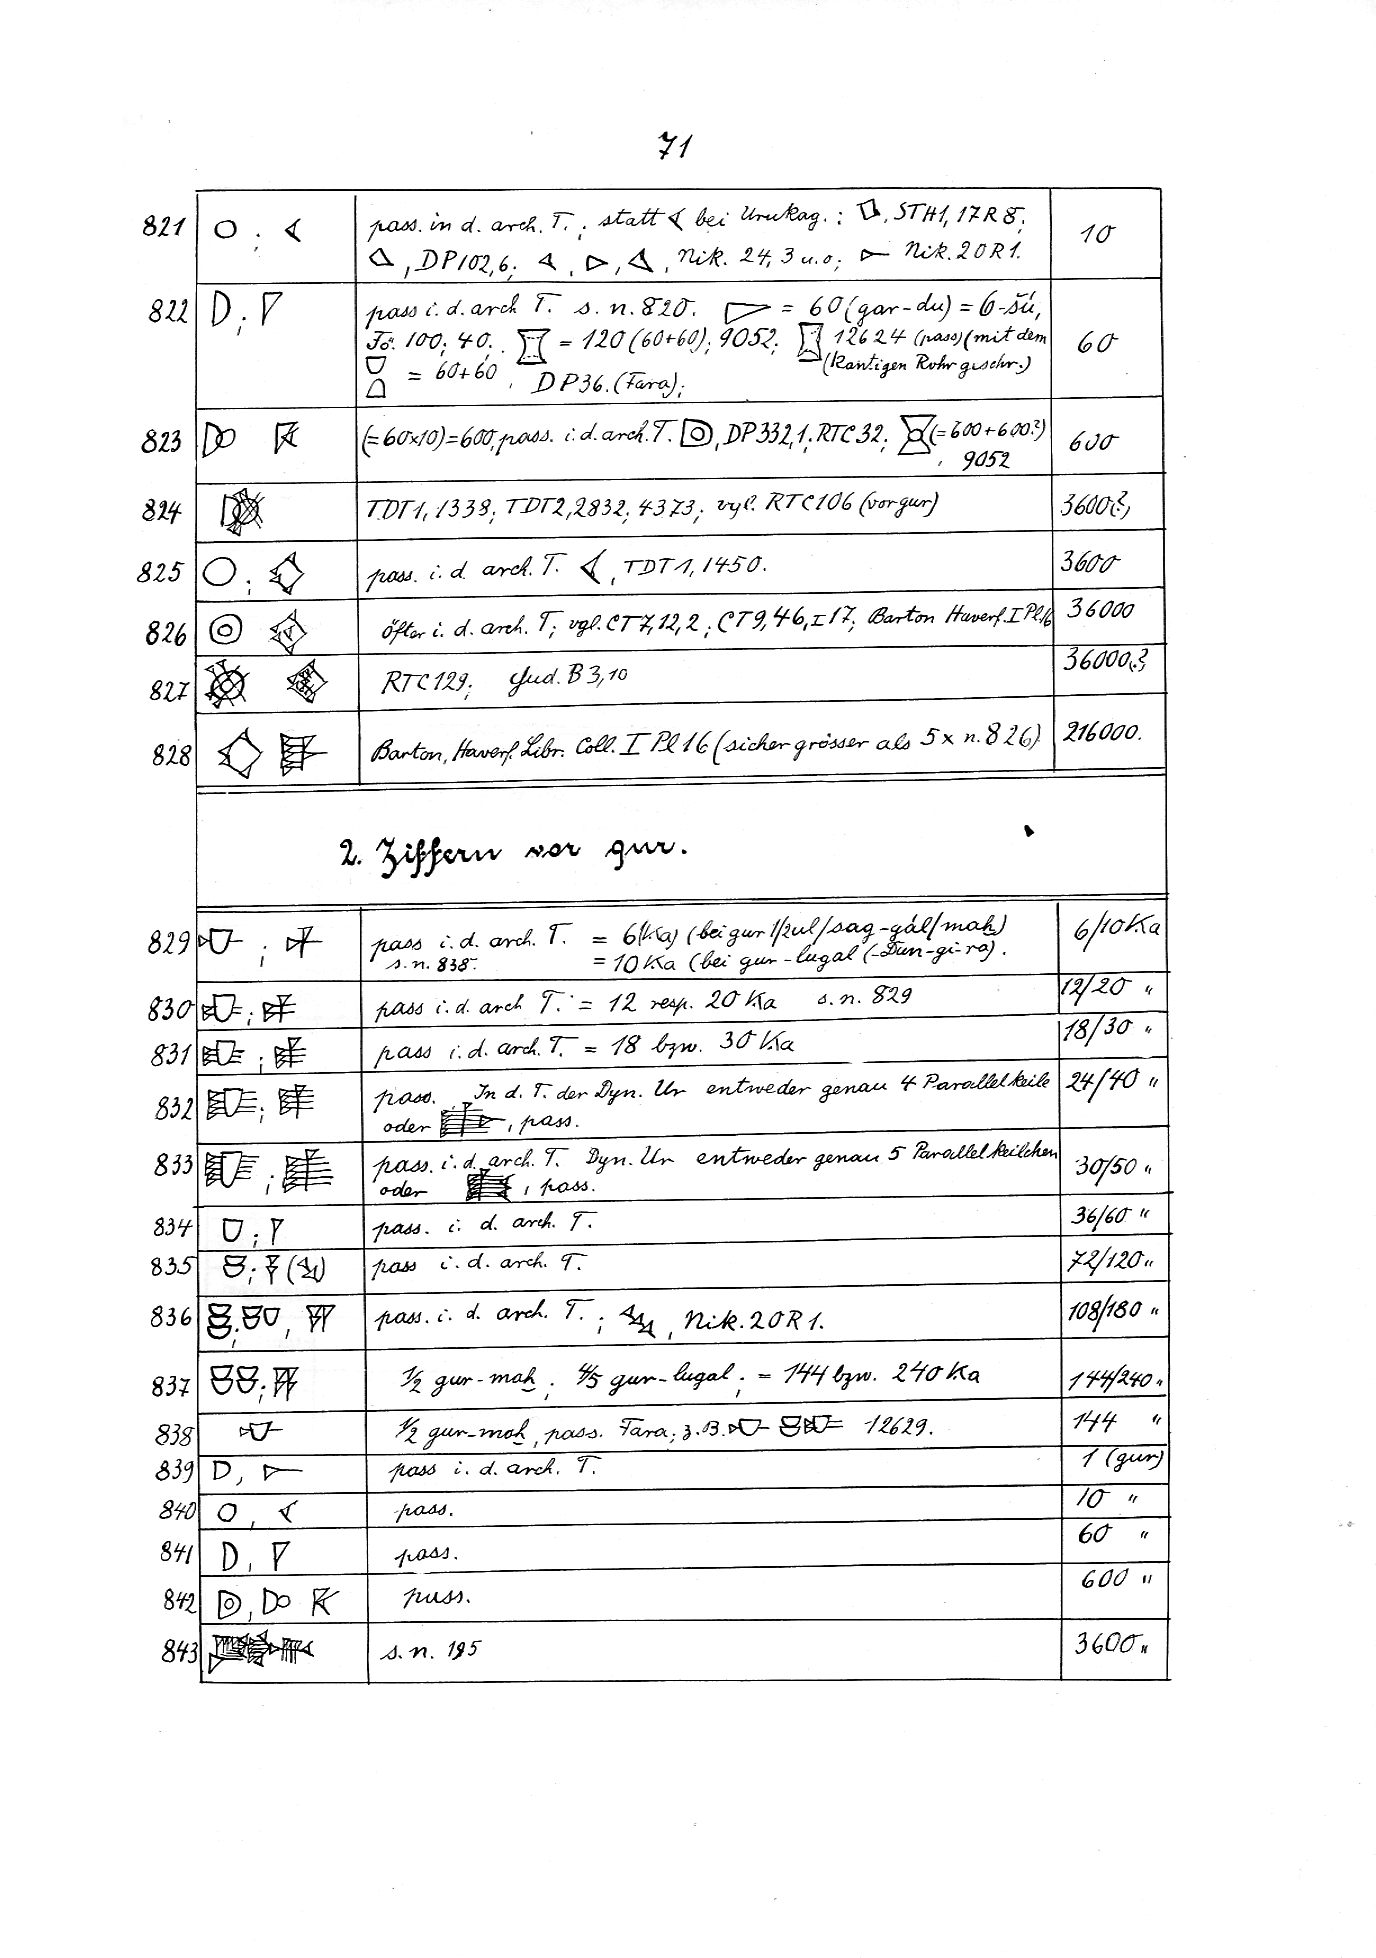 71
821 pass. in d. arch. T.; statt bei Urukag.: , STH1, 17 R 8; 10
, DP 102,6; , , , Nik. 24, 3 u.o; Nik. 20 R 1.
822 pass i. d. arch T. s. n. 820. = 60 (gar-du) = 6-šú, 60
Fö. 100; 40. = 120 (60+60); 9052; 12624 (pass) (mit dem
= 60+60, DP 36. (Fara); (kantigen Rohr geschr.)
823 (=60x10)=600, pass. i. d. arch. T. , DP 332,1; RTC 32; (=600+600?) 600
, 9052
824 TDT 1, 1338; TDT 2, 2832; 4373; vgl. RTC 106 (vor gur) 3600(?)
825 pass. i. d. arch. T. , TDT 1, 1450. 3600
826 öfter i. d. arch. T; vgl. CT 7, 12, 2; CT 9, 46, I 17; Barton Haverf. I Pl. 16 36000
827 RTC 129; Gud. B 3, 10 36000(?)
828 Barton, Haverf. Libr. Coll. I Pl 16 (sicher grösser als 5 x n. 826) 216000.
2. Ziffern vor gur.
829 pass i. d. arch. T. = 6(Ka) (bei gur 1/2 ul/sag-gál/maḫ) 6/10 Ka
s. n. 838. = 10 Ka (bei gur-lugal (-Dun-gi-ra).
830 pass i. d. arch T. = 12 resp. 20 Ka s. n. 829 12/20 "
831 pass i. d. arch. T. = 18 bzw. 30 Ka 18/30 "
832 pass. In d. T. der Dyn. Ur entweder genau 4 Parallelkeile 24/40 "
oder , pass.
833 pass. i. d. arch. T. Dyn. Ur entweder genau 5 Parallelkeilchen 30/50 "
oder , pass.
834 pass. i. d. arch. T. 36/60 "
835 pass i. d. arch. T. 72/120 "
836 pass. i. d. arch. T. ; , Nik. 20 R 1. 108/180 "
837 1/2 gur-maḫ; 4/5 gur-lugal; = 144 bzw. 240 Ka 144/240 "
838 1/2 gur-maḫ, pass. Fara; z. B. 12629. 144 "
839 pass i. d. arch. T. 1 (gur)
840 pass. 10 "
841 pass. 60 "
842 pass. 600 "
843 s. n. 195 3600 "